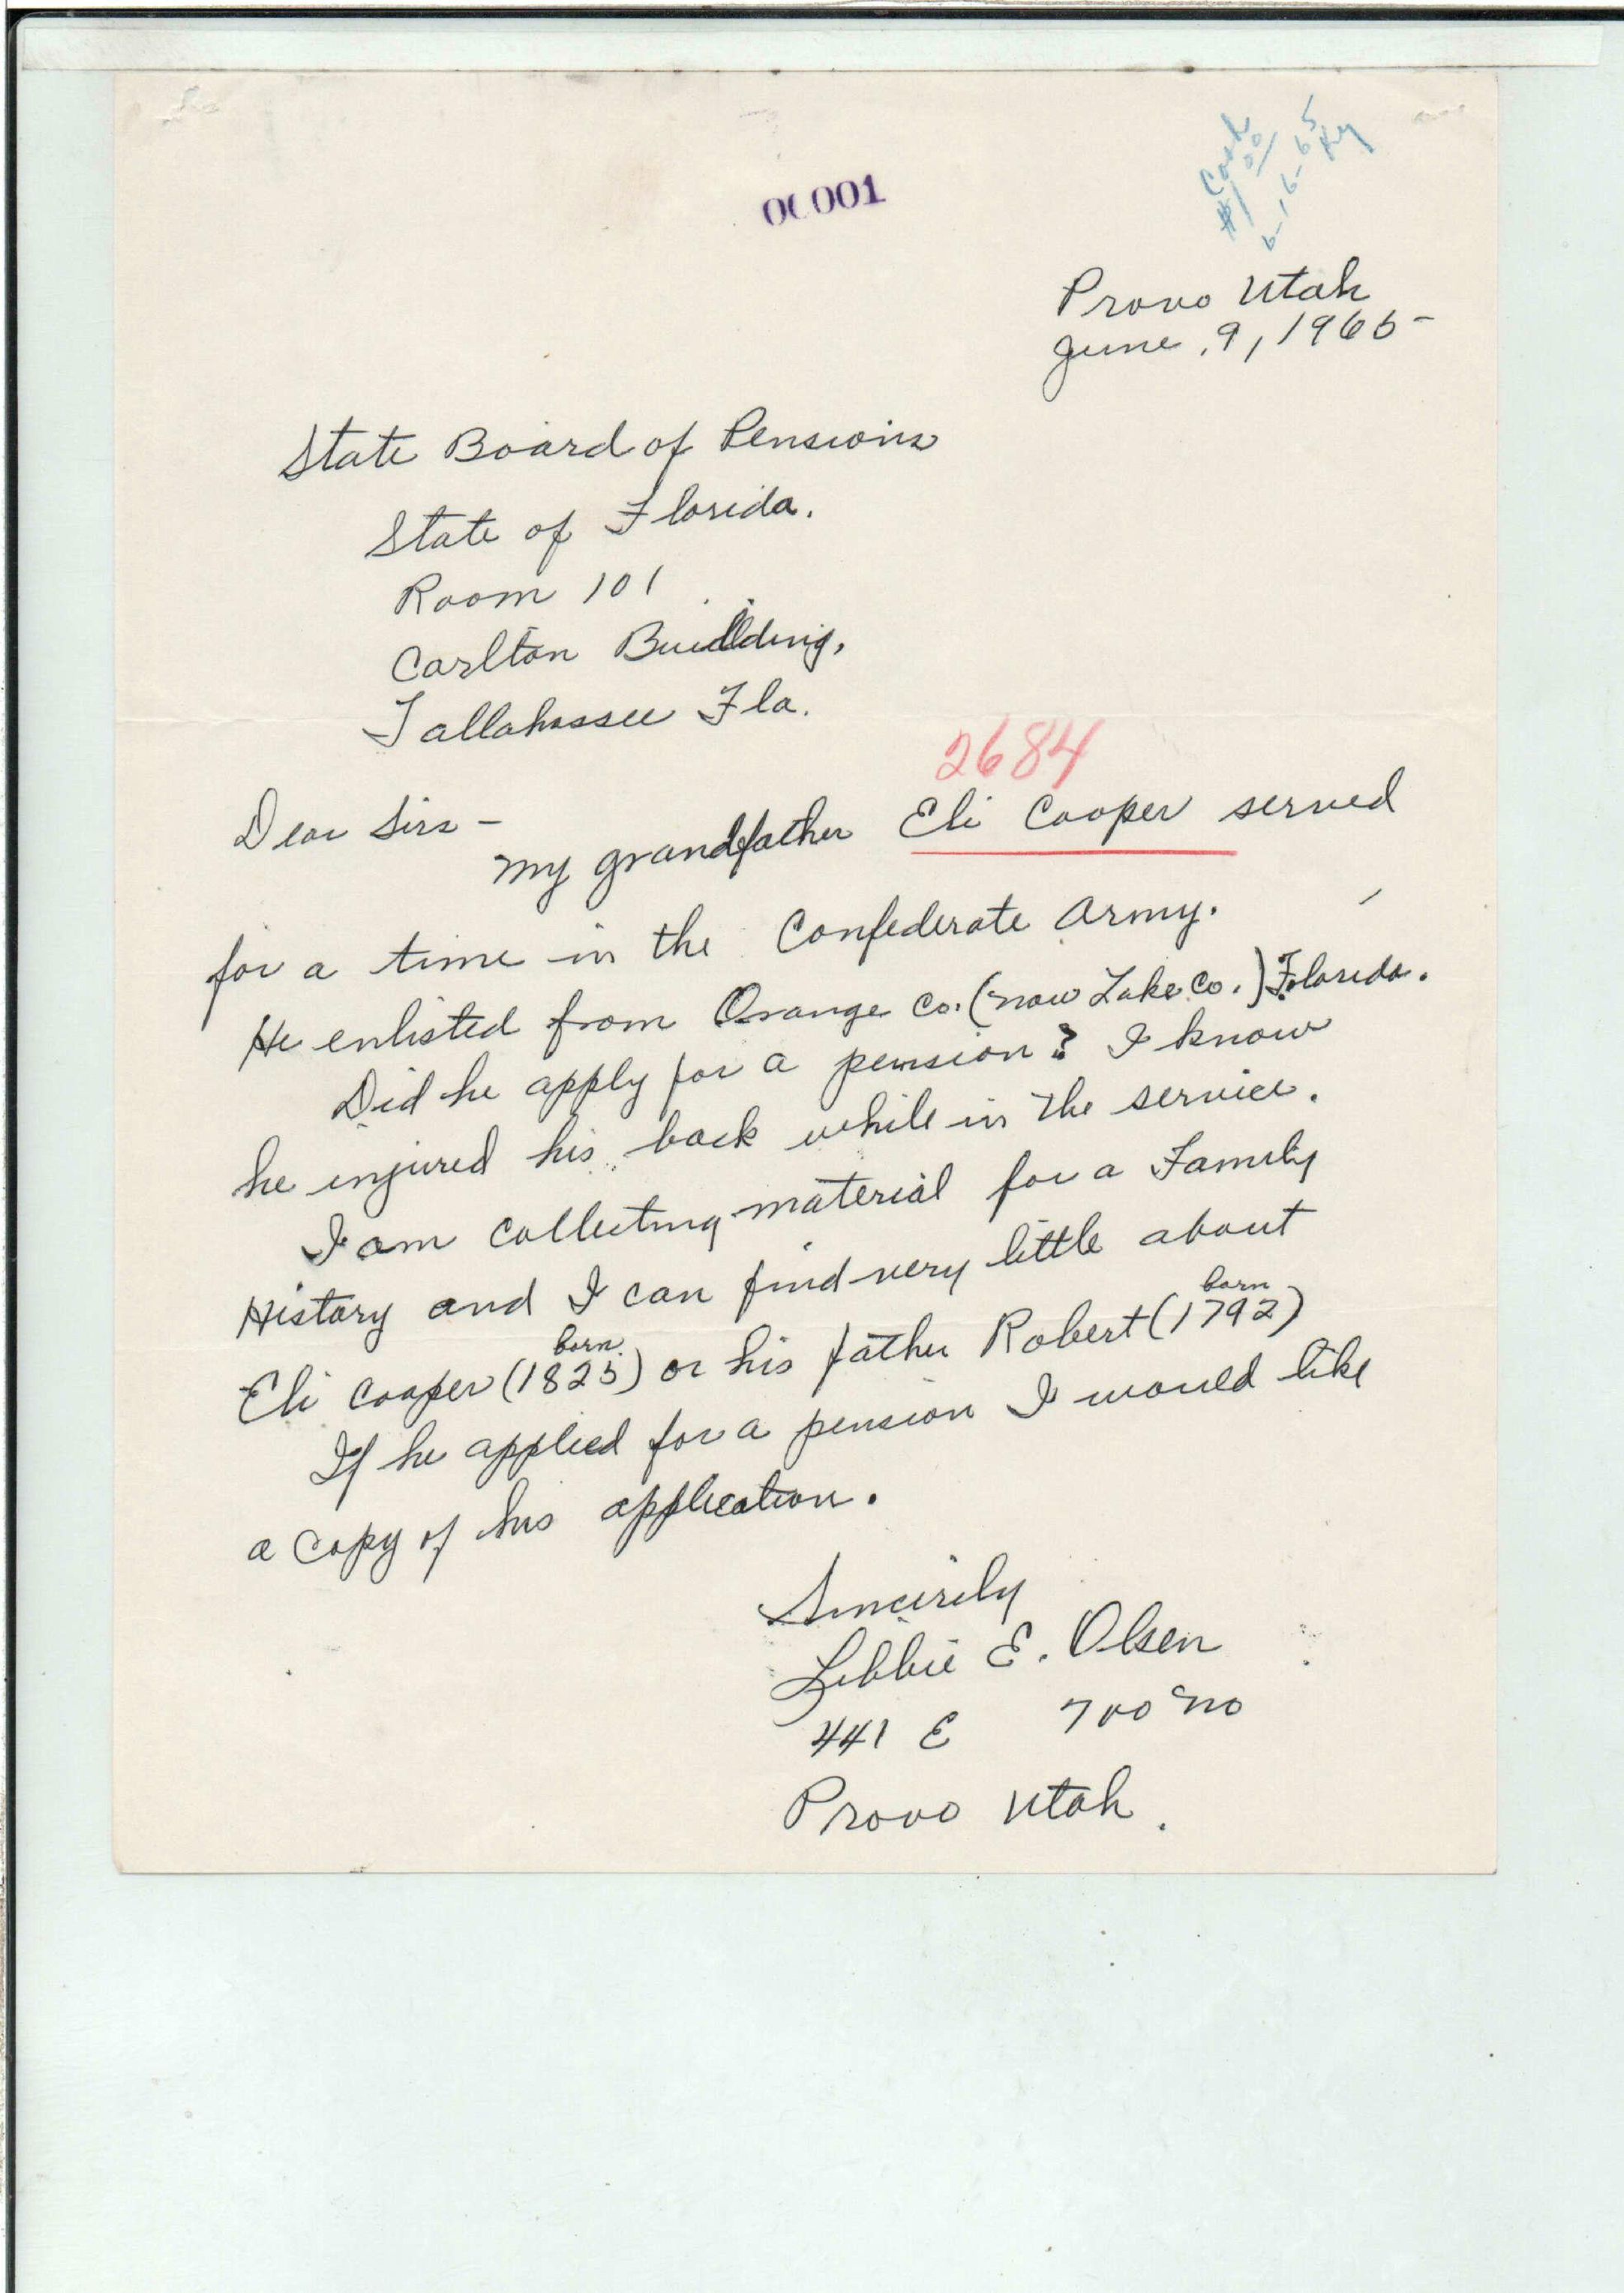 00001
Cash
$1 00
6-16-65
Provo Utah
June, 9, 1965
State Board of Pensions
State of Florida.
Room 101
Carlton Building,
Tallahassee Fla.
2684
Dear Sirs -
My grandfather Eli Cooper served
for a time in the Confederate Army.
He enlisted from Orange Co. (now Lake Co.) Florida.
Did he apply for a pension? I know
he injured his back while in the service.
I am collecting material for a Family
History and I can find very little about
born born
Eli Cooper (1825) or his father Robert (1792)
If he applied for a pension I would like
a copy of his application.
Sincerily
Libbie E. Olsen
441 E 700 No
Provo Utah.